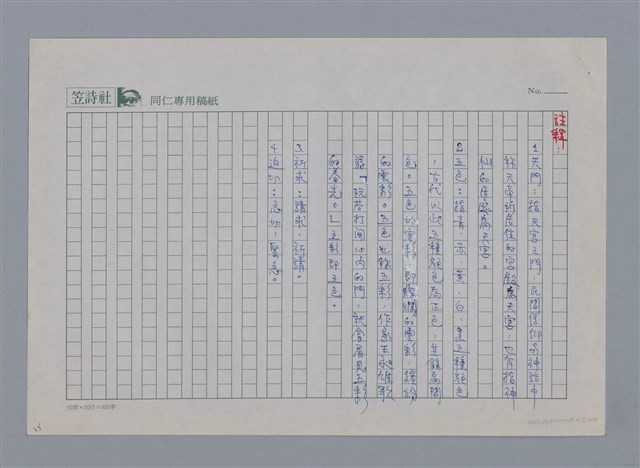 笠詩社
同仁專用稿紙
No.
註釋：
1 天門：指天宮之門，民間信仰及神話中
稱天帝所居住的宮殿為天宮，也有指神
仙的居處為天宮。
2 五色：指青、赤、黃、白、黑五種顏色
，古代以此五種顏色為正色，其餘為間
色。五色的雲彩，即燦爛的雲彩，繽紛
的雲彩。五色也稱五彩，作家王昶雄歌
謠「阮若打開心內的門，就會看見五彩
的春光。」五彩即五色。
3 祈求：請求，祈請。
4 迫切：急切，緊急。
20字×20行=400字